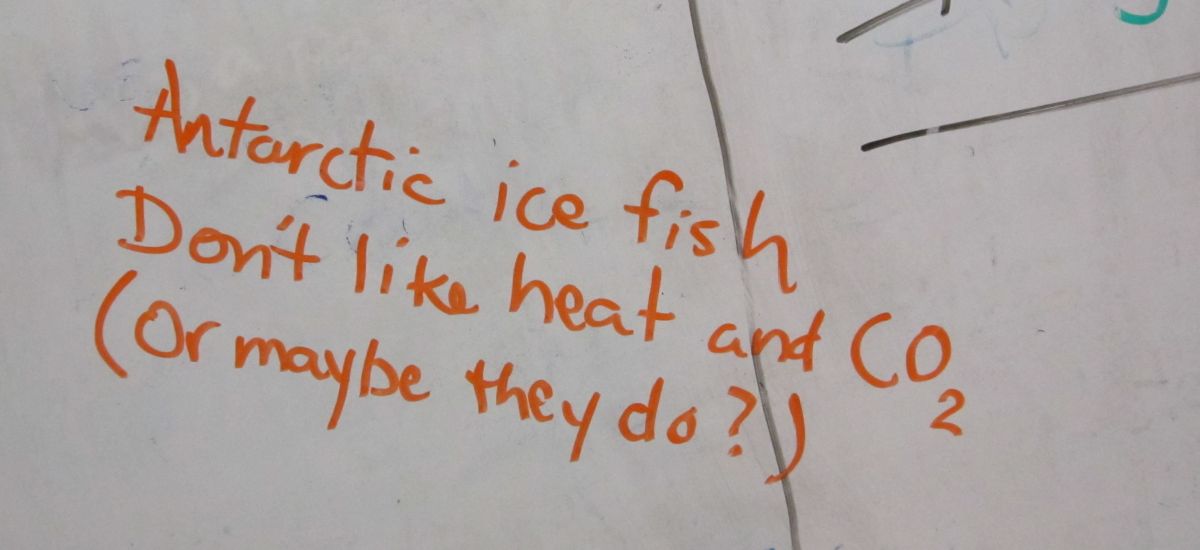 Antarctic ice fish
Don't like heat and CO₂
(Or maybe they do?)